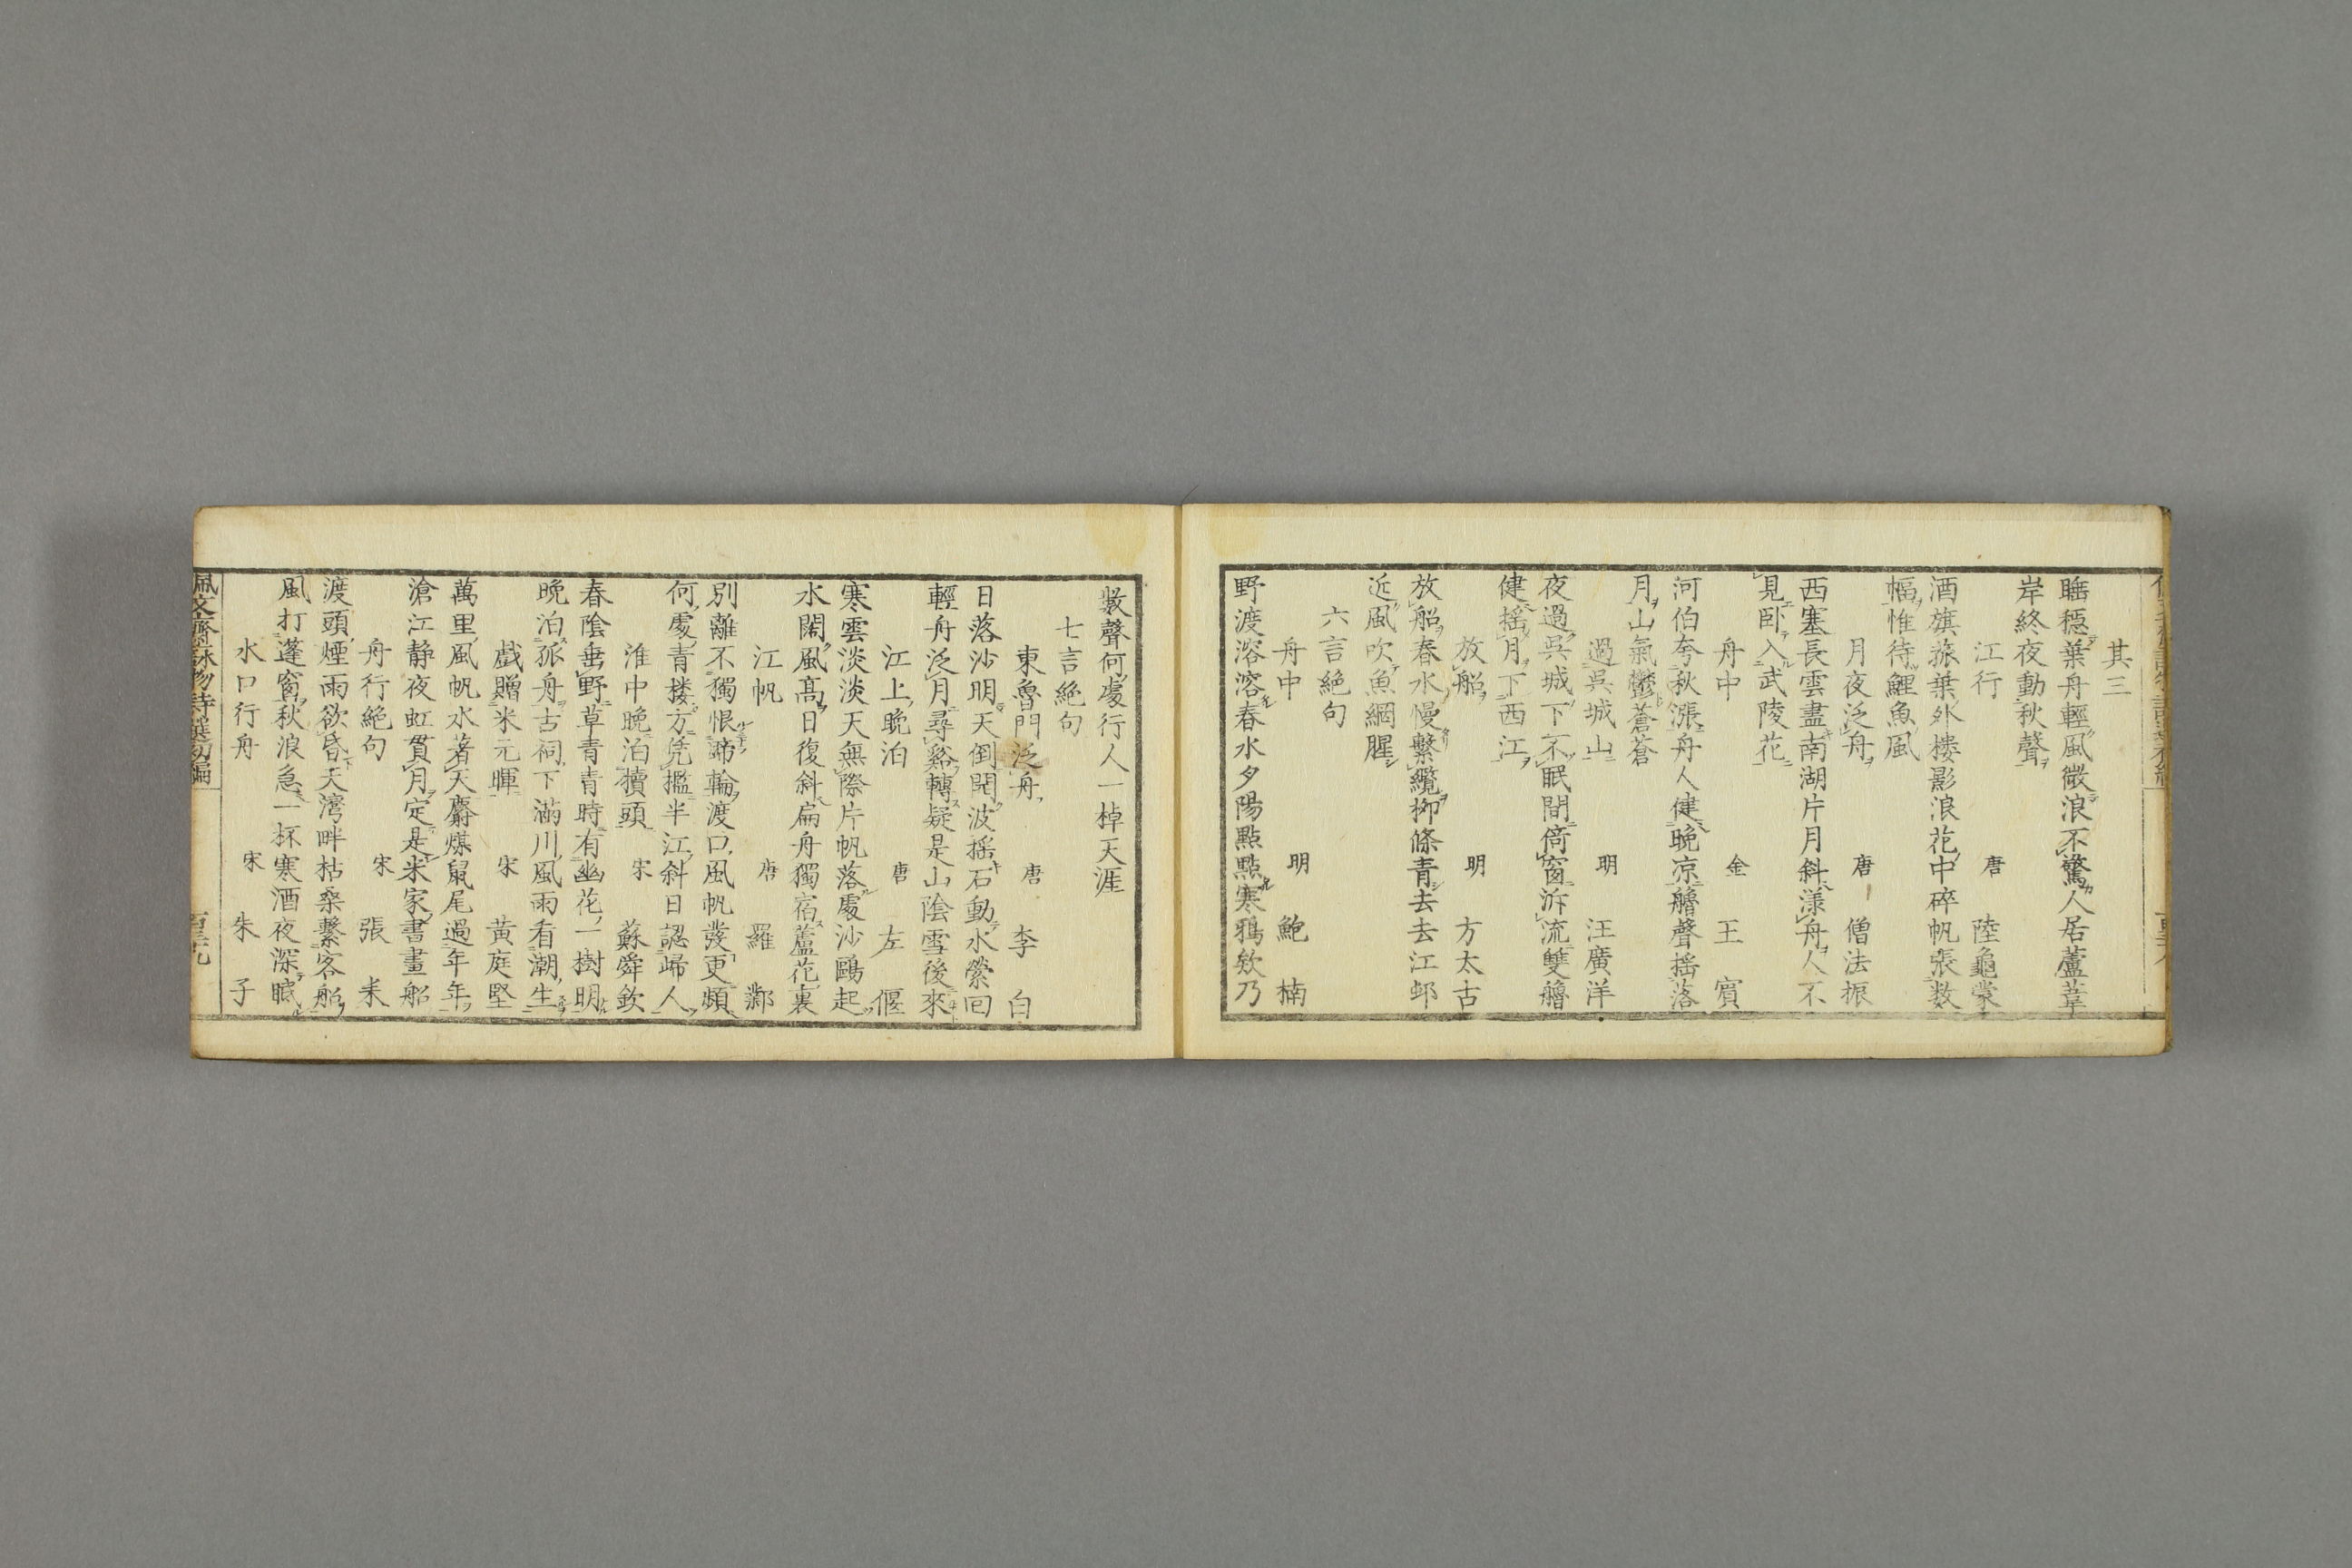 其三
睡穩葉舟輕風微浪不驚人居蘆葦
岸終夜動秋聲
江行　唐　陸龜蒙
酒旗菰葉外楼影浪花中碎帆張数
幅惟待鯉魚風
月夜泛舟　唐　僧法振
西塞長雲盡南湖片月斜漾舟人不
見卧入武陵花
舟中　金　王　賓
河伯夸秋漲舟人健晚凉艪聲揺落
月山氣鬱蒼蒼
過呉城山　明　汪廣洋
夜過呉城下不眠間倚窗泝流雙艪
健揺月下西江
放船　明　方太古
放船春水慢繫纜柳條青去去江邨
近風吹魚網腥
六言絶句
舟中　明　鮑　楠
野渡溶溶春水夕陽點點寒鴉欸乃
數聲何處行人一棹天涯
七言絶句
東魯門泛舟　唐　李　白
日落沙明天倒開波揺石動水縈回
輕舟泛月尋谿轉疑是山陰雪後來
江上晚泊　唐　左　偃
寒雲淡淡天無際片帆落處沙鷗起
水闊風髙日復斜扁舟獨宿蘆花裏
江帆　唐　羅　鄴
別離不獨恨蹄輪渡口風帆發更頻
何處青楼方凭檻半江斜日認歸人
淮中晚泊犢頭　宋　蘇舜欽
春陰垂野草青青時有幽花一樹明
晚泊孤舟古祠下滿川風雨看潮生
戲贈米元暉　宋　黃庭堅
萬里風帆水著天麝煤鼠尾過年年
滄江静夜虹貫月定是米家書畫船
舟行絶句　宋　張　耒
渡頭煙雨欲昏天灣畔枯桑繫客船
風打蓬窗秋浪急一杯寒酒夜深眠
水口行舟　宋　朱　子
佩文齋詠物詩選初編